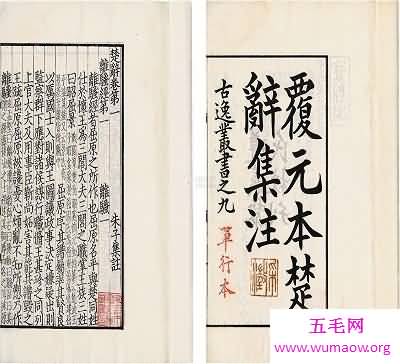 覆元本楚
辭集注
古逸叢書之九
單行本
楚辭卷第一
離騷經第一 離騷一 朱子集註
離騷經者屈原之所作也屈原名平與楚同姓
仕於懷王為三閭大夫三閭之職掌王族三姓
曰昭屈景
屈原序其譜屬率其賢良
以厲國士入則與王圖議政事決定嫌疑出則
監察群下應對諸侯謀行職脩王甚珍之同列
上官大夫及用事臣靳尚妒害其能共譖毀之
王疏屈原屈原被讒憂心煩亂不知所愬乃
五毛网
www.wumaow.org